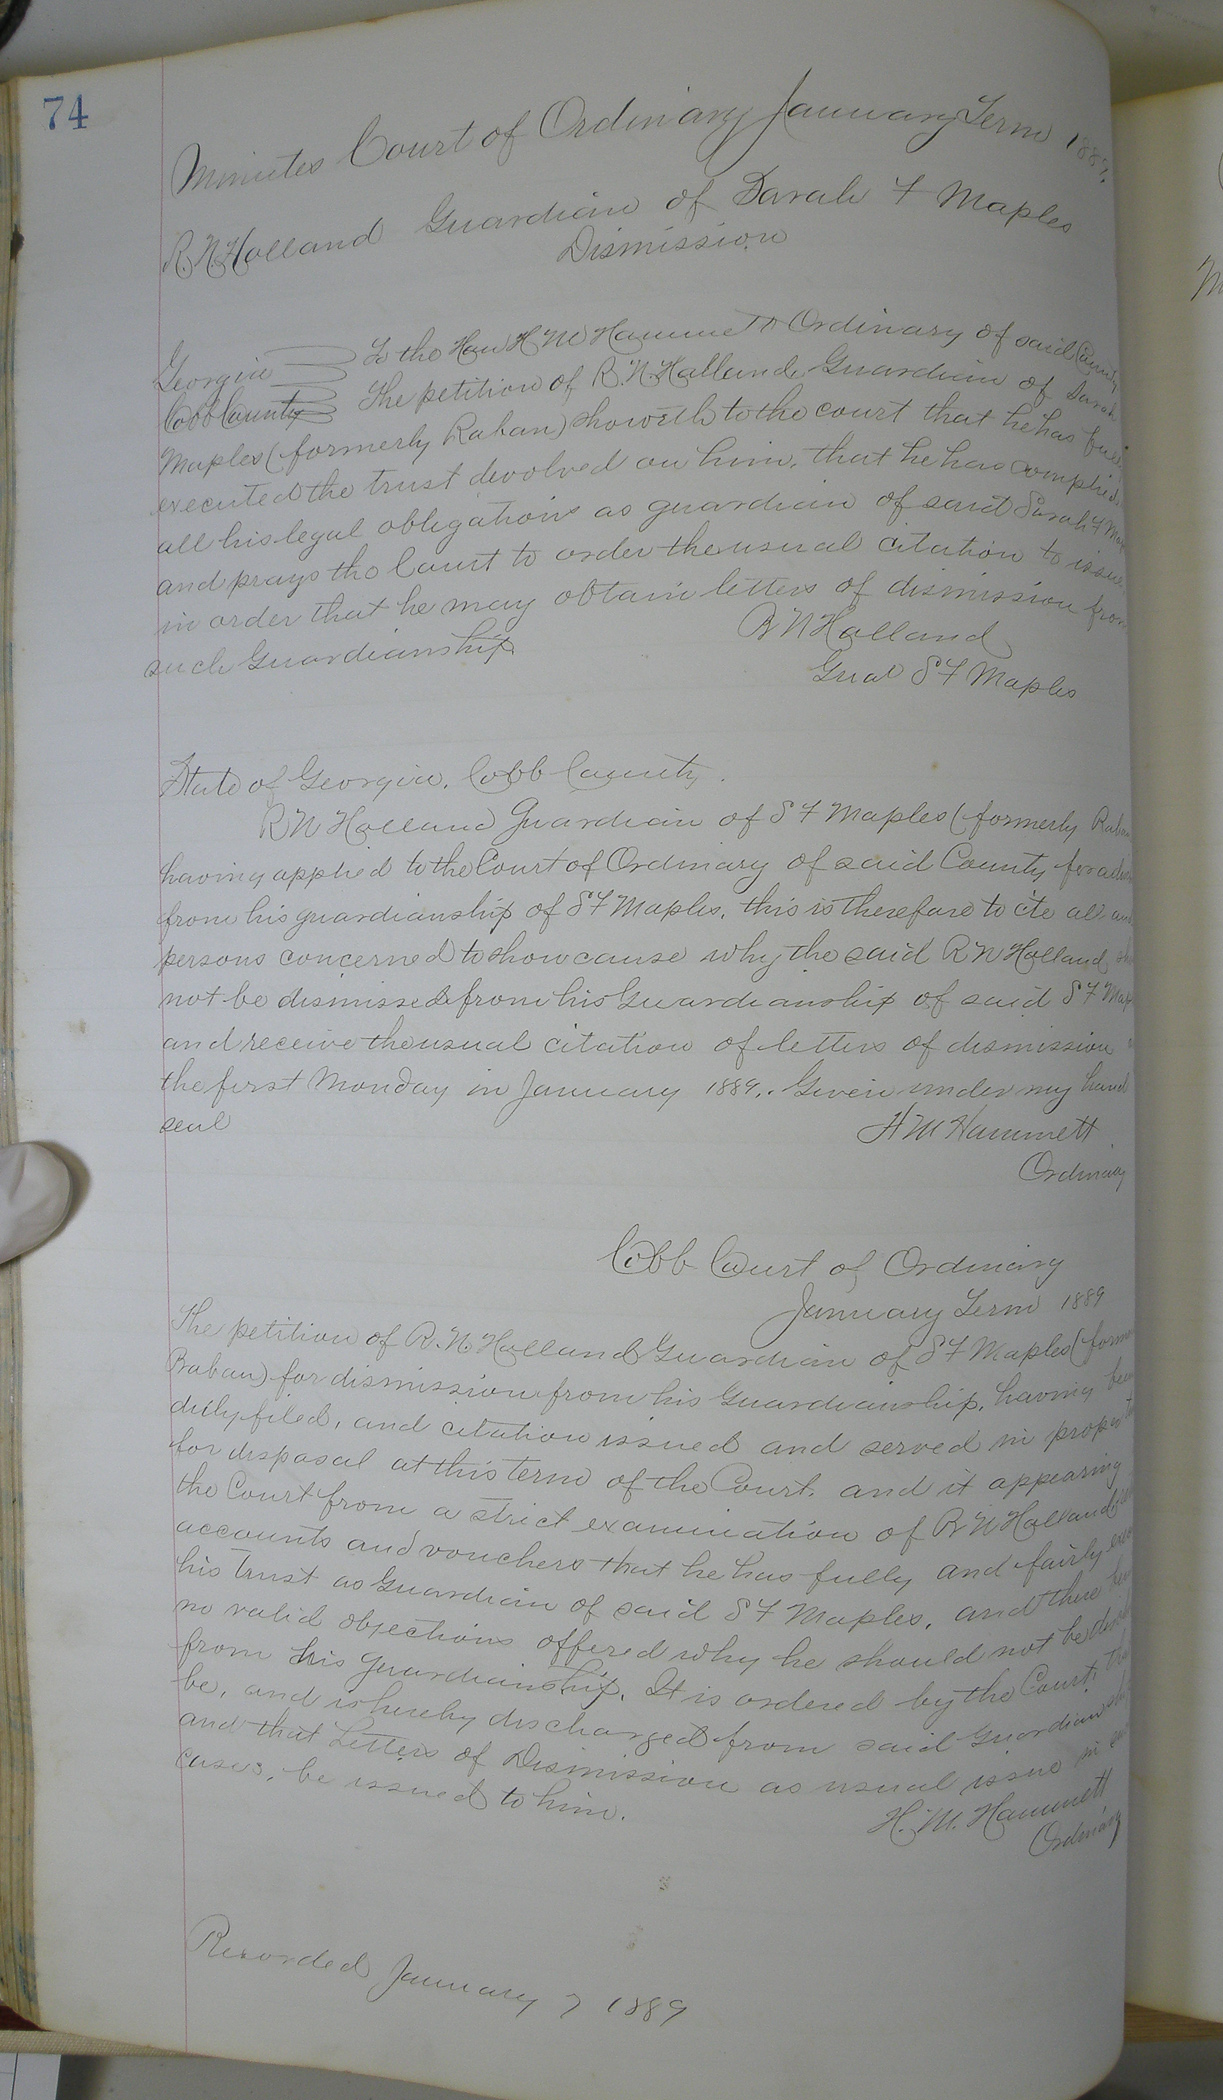 74
Minutes Court of Ordinary January Term 1889.
R. N. Holland Guardian of Sarah F Maples
Dismission
Georgia To the Hon H M Hammett Ordinary of said County
Cobb County The petition of R. N. Holland Guardian of Sarah
Maples (formerly Raban) showeth to the court that he has fully
executed the trust devolved on him, that he has complied
all his legal obligations as guardian of said Sarah F Map
and prays the Court to order the usual citation to issue
in order that he may obtain letters of dismission from
such Guardianship.
R N Holland
Guar S F Maples
State of Georgia, Cobb County.
R N Holland Guardian of S F Maples (formerly Raban
having applied to the Court of Ordinary of said County for a
from his guardianship of S F Maples, this is therefore to cite all and
persons concerned to show cause why the said R N Holland
not be dismissed from his Guardianship of said S F Map
and receive the usual citation of letters of dismission
the first Monday in January 1889. Given under my hand
seal
H M Hammett
Ordinary
Cobb Court of Ordinary
January Term 1889
The petition of R. N. Holland Guardian of S F Maples (form
Raban) for dismission from his Guardianship, having been
duly filed, and citation issued and served in proper
for disposal at this term of the Court, and it appearing
the Court from a strict examination of R N Holland's
accounts and vouchers that he has fully and fairly exe
his trust as Guardian of said S F Maples, and there being
no valid objections offered why he should not be
from his Guardianship, It is ordered by the Court that
be, and is hereby discharged from said Guardianship
and that Letters of Dismission as usual issue in
cases, be issued to him.
H. M. Hammett
Ordinary
Recorded January 7 1889